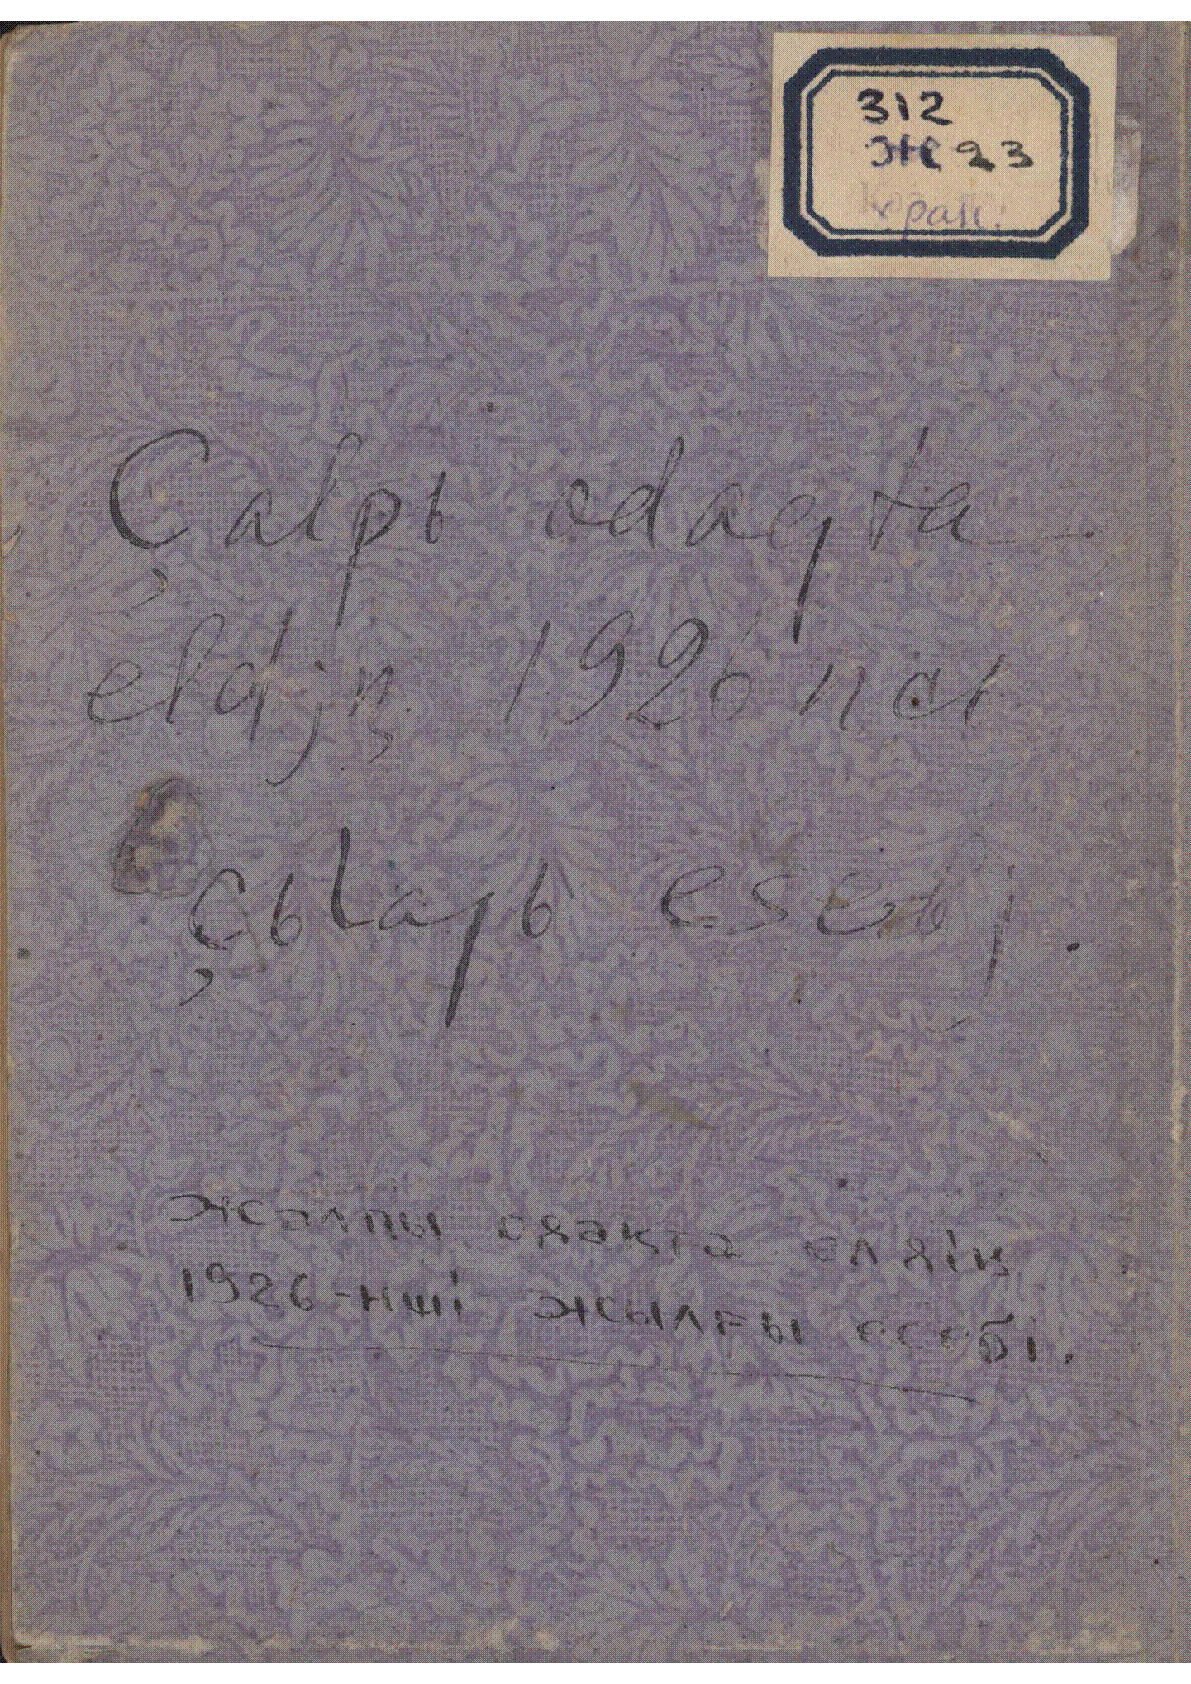 312
Ж 23
Çalpь odaqta
eldjņ 1926 ncı
çьlaƣь esebj.
Жалпы одақта елдің
1926-ншы жылғы есебі.